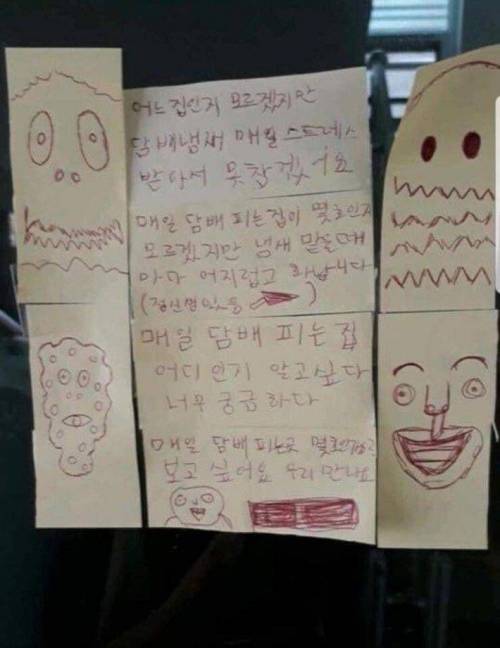 어느집인지 모르겠지만
담배냄새 매일 스트레스
받아서 못참겠어요
매일 담배 피는집이 몇호인지
모르겠지만 냄새 맡을때
마다 어지럽고 화납니다
(정신병있음)
매일 담배 피는 집
어디인지 알고싶다
너무 궁금하다
매일 담배피는곳 몇호인지
보고 싶어요 우리만나요